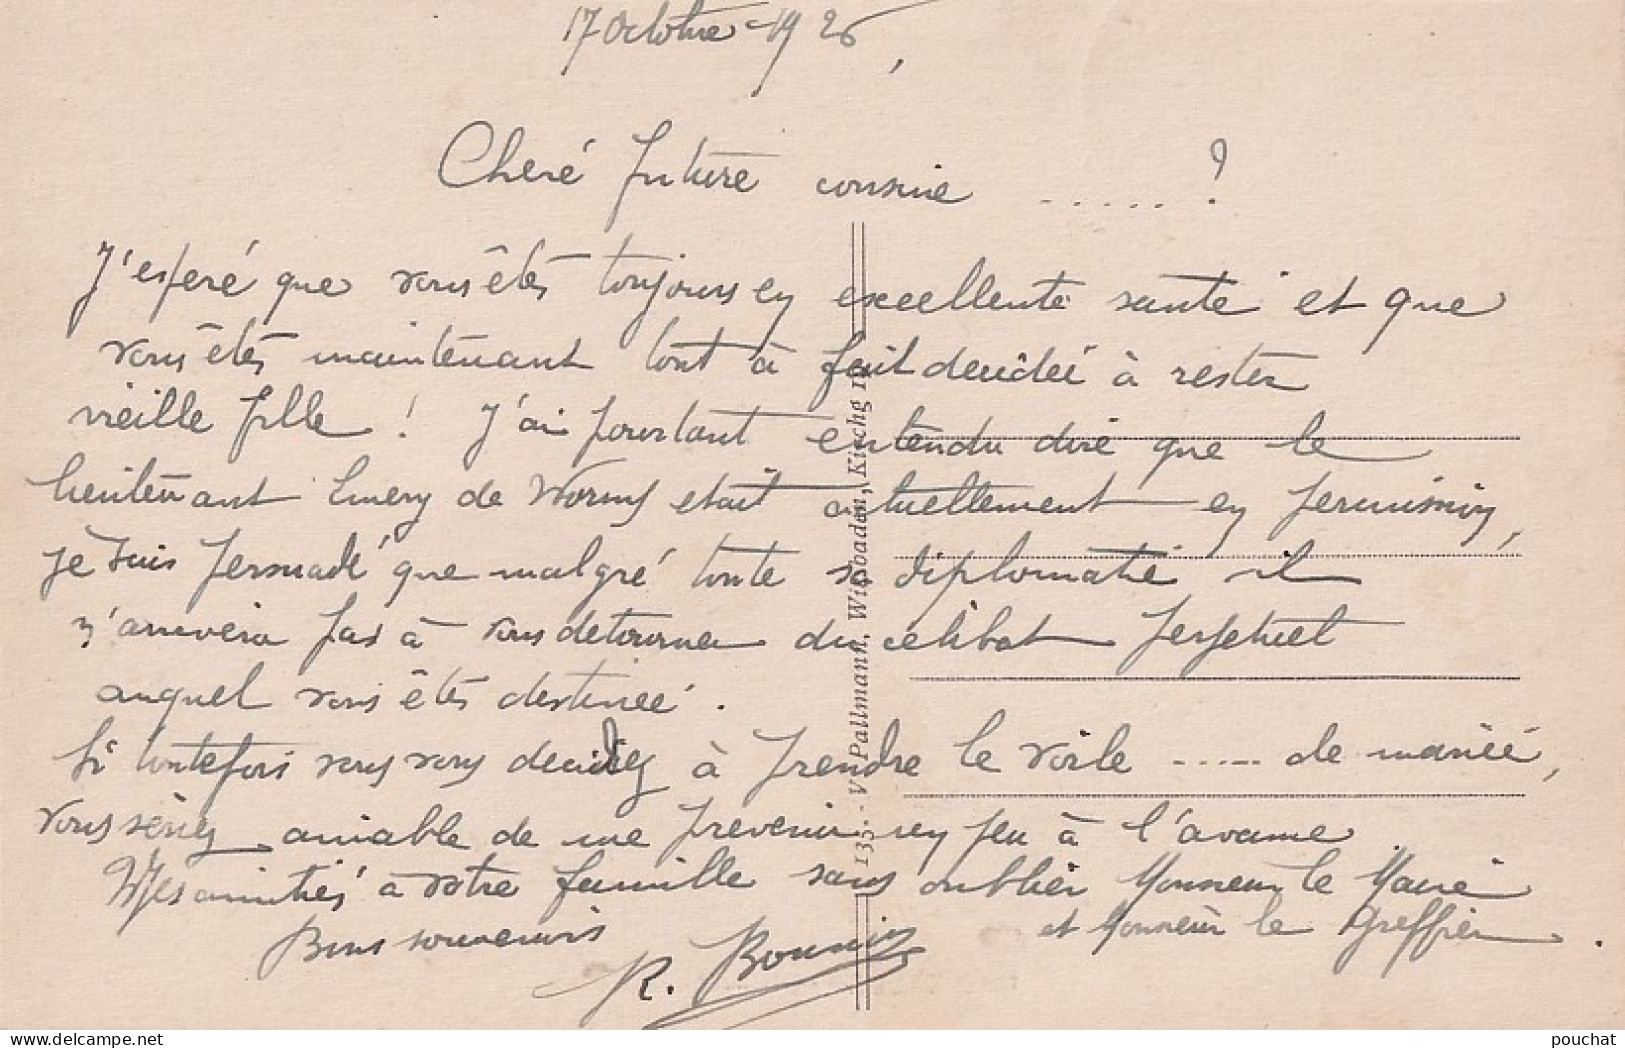 17 Octobre 1926,
Cheré future cousine ..... ?
J'esperé que vous êtés toujours en excellente santé et que
vous êtés maintenant tout à fait decidéé à rester
vieille fille ! J'ai pourtant entendu diré que le
lieutenant Emery de Worms etait actuellement en permission,
je suis persuadé que malgré toute sa diplomatie il
n'arrivera pas à vous detourner du celibat perpetuel
auquel vous êtés destinéé.
Si toutefois vous vous decidiez à prendre le voile ..... de mariéé,
vous seriez aimable de me prevenir un peu à l'avance
Mes amitiés à votre famille sans oublier Monsieur le Maire
et Monsieur le Greffier.
Bons souvenirs
R.
135. - V. Pallmann, Wiesbaden, Kirchg 19
pouchat